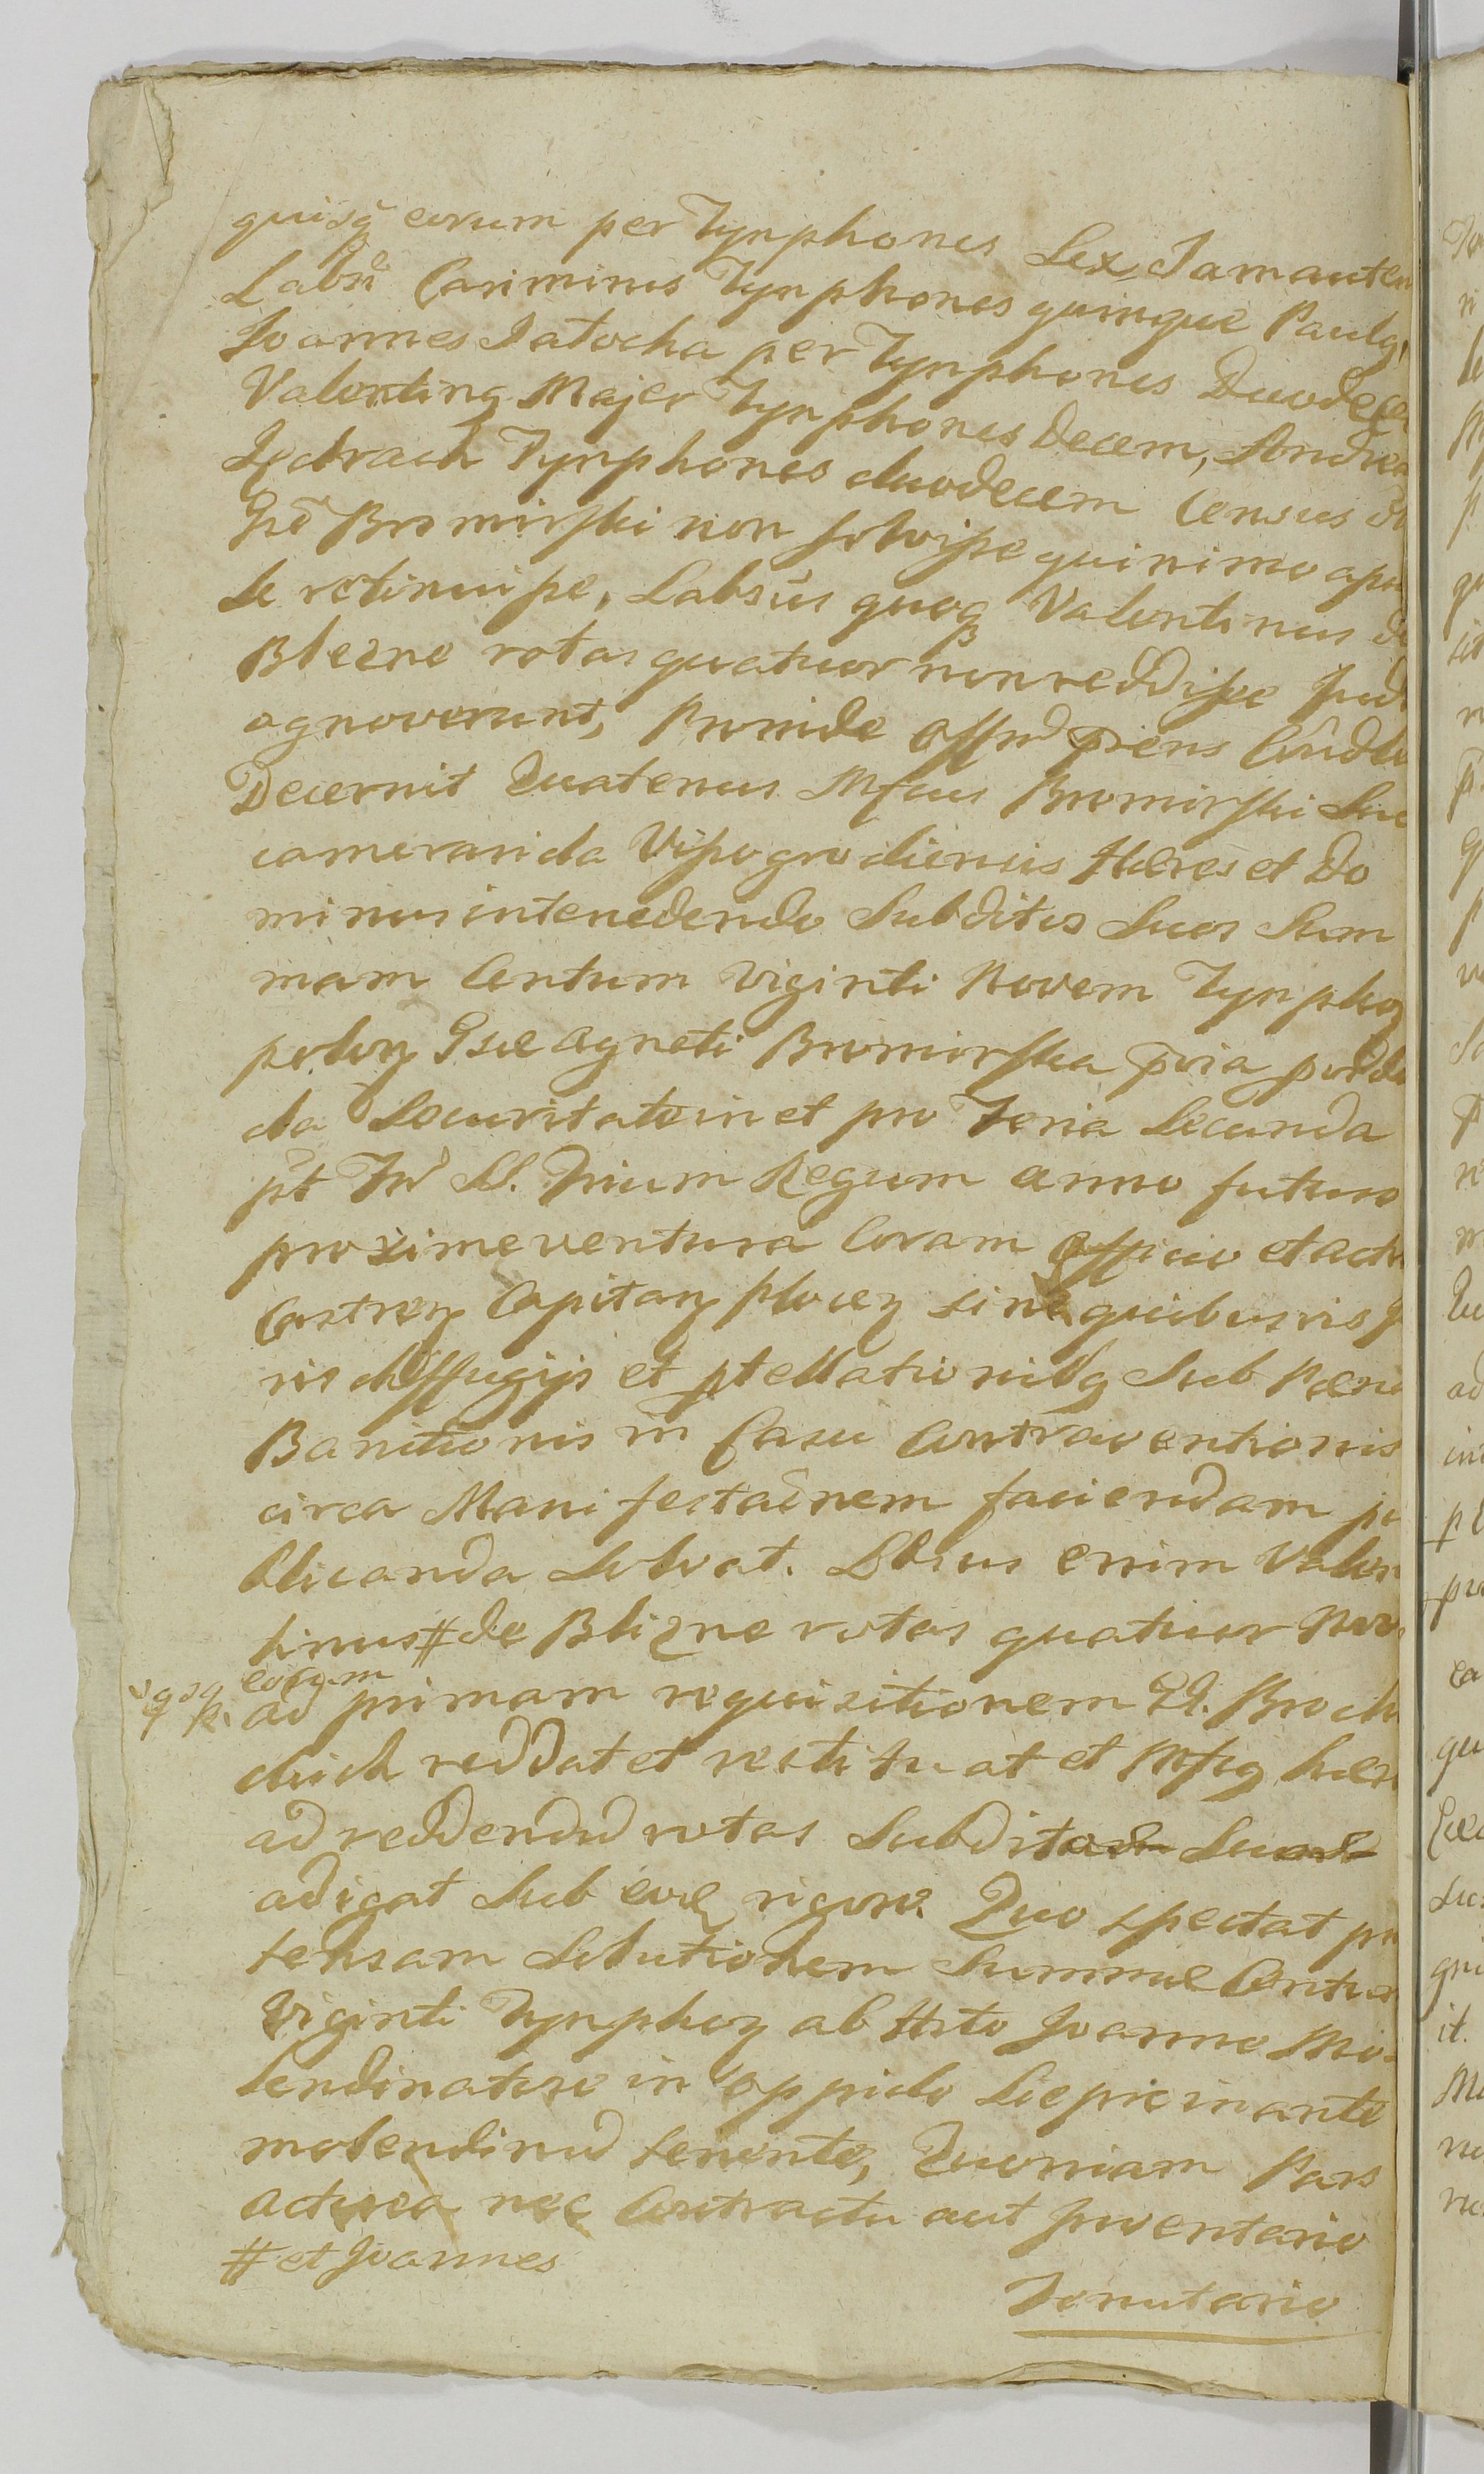 quisq eorum per Tynphones Sex, Jam auten
Labrũ Cariminus Tynphones quinque Paulg,
Joannes Jatocha per Tynphones Duodece
Valenting Majer Tynphones Decem, Andrea
Tynphones duodecem Census
Gso Bromirski non solvisse quinimo apu
Se retinuisse, Labsus quoq Valentinus de
Blezne rotas quatuor non reddisse
agnoverunt, Proinde Offm priens
Decernit Quatenus Mfcus Bromirski Suc
camerarida Vissogrodiensis Hæres et Do
minus intercedendo Subditos Suos Sum
mam Centum Viginti Novem Tynphoz
polonz Gsæ Agneti Bromirska pria
da Securitate in et pro Feria Secunda
pt Fm SS. Trium Regum anno futuro
proxime ventura Coram Officio et actis
Castrenz Capitanz plocenz sine quibusvis
ris diffugijs et ptellationibg Sub Pæna
Banitionis in Casu Contraventionis
circa Manifestaõnem faciendam pu
blicanda Solvat. Lbsus enim Valen
tinus # de Blizne rotas quatuor
eorum
ad primam requisitionem G. Broch
reddat et restituat et Mfcg hæres
ad reddendũ rotas Subditos Suos
adigat Sub eodẽ rigore. Quo spectat præ
tensam Solutionem Summæ Centum
Viginti Tynphoz ab Hrto Joanne Mo-
lendinatore in oppido Siepric in ante
molendinũ tenente, Quoniam Pars
actorea nec Contractu aut Inventario
# et Joannes
Donutario